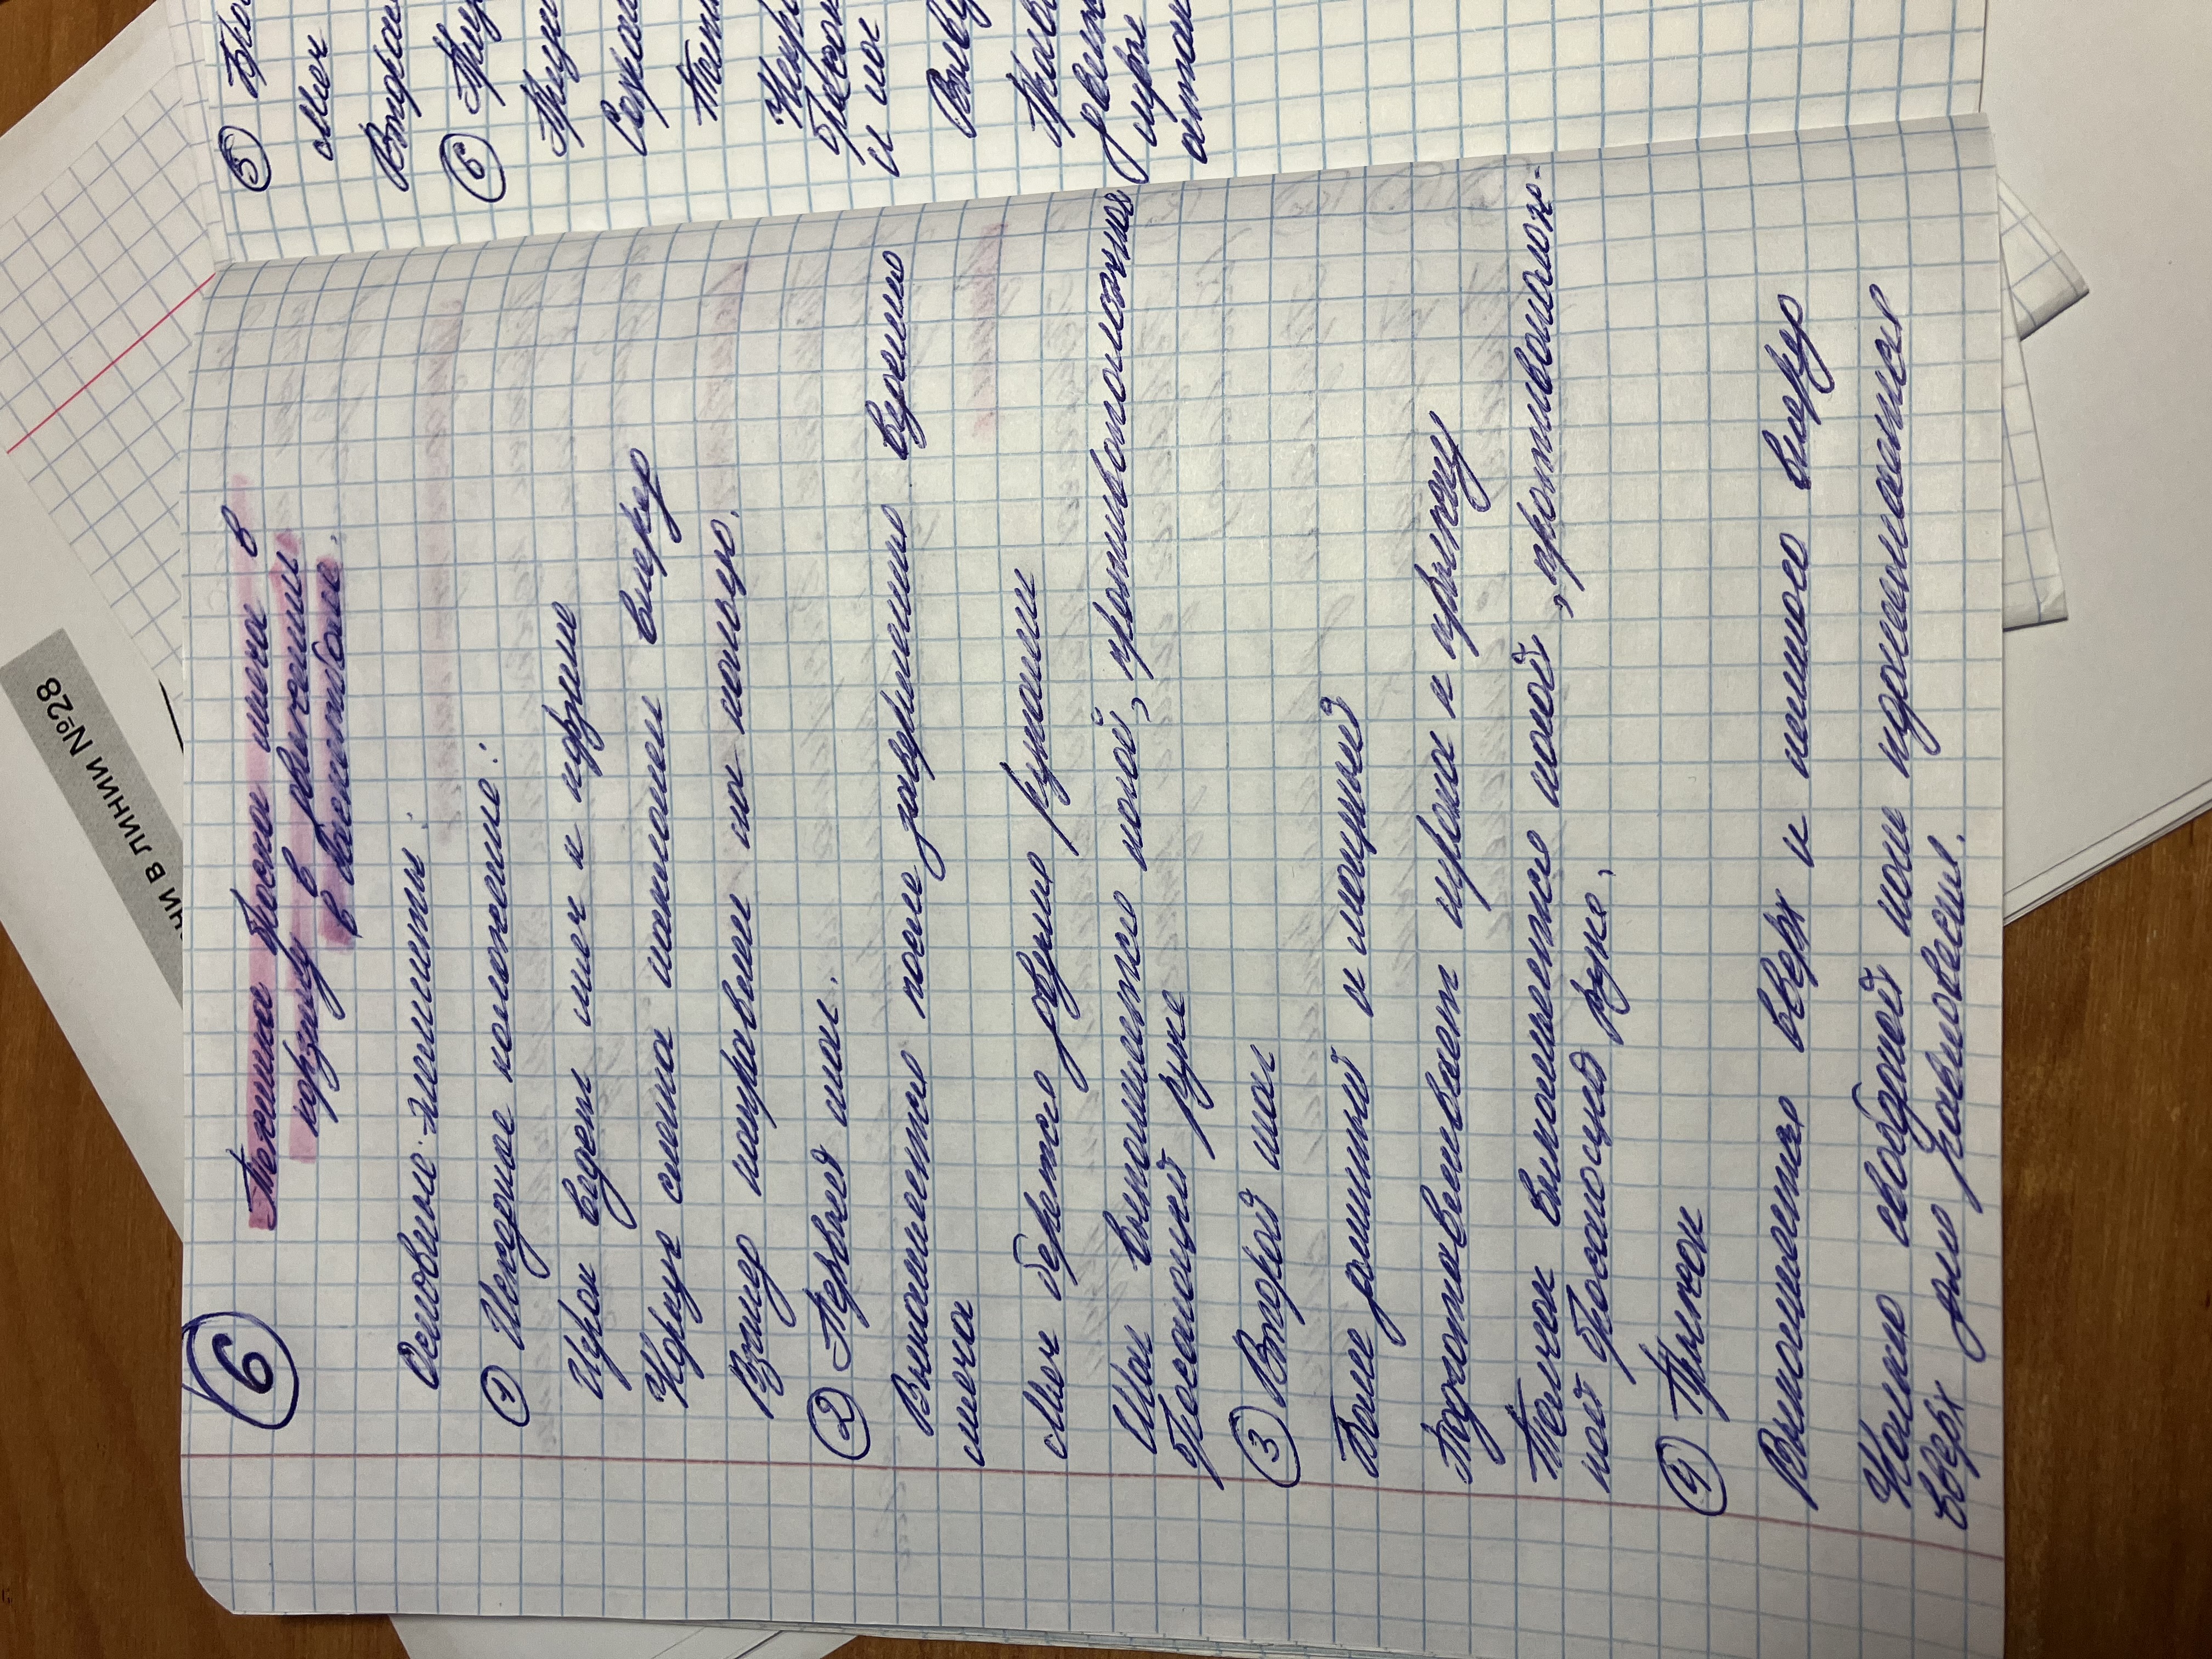 6
Техника броска мяча в
корзину в движении
в баскетболе.
Основные элементы:
1 Исходное положение:
Игрок ведет мяч к корзине
Корпус слегка наклонен вперед
Взгляд направлен на кольцо.
2 Первый шаг.
Выполняется после завершения ведения
мяча
Мяч берется двумя руками
Шаг выполняется ногой, противоположной
бросающей руке
3 Второй шаг
Более длинный и мощный
Подготавливает игрока к прыжку
Толчок выполняется ногой, противополож-
ной бросающей руке.
4 Прыжок
Выполняется вверх и немного вперед
Колено свободной ноги поднимается
вверх для равновесия.
5 Бро
Мяч
6
и но
ЧИ В ЛИНИИ №28